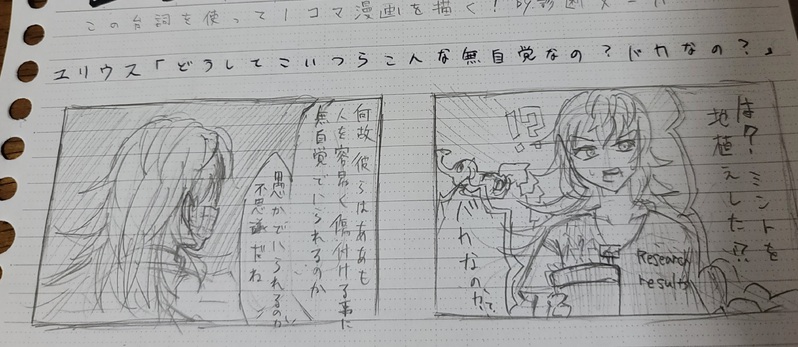 この台詞を使って1コマ漫画を描く! by診断メーカー
エリウス「どうしてこいつらこんな無自覚なの?バカなの?」
は?ミントを
地植えした!?
!?
バカなのか?
Research
results
何故彼らはああも
人を容易く傷付ける事に
無自覚でいられるのか
愚かでいられるのか
不思議だね